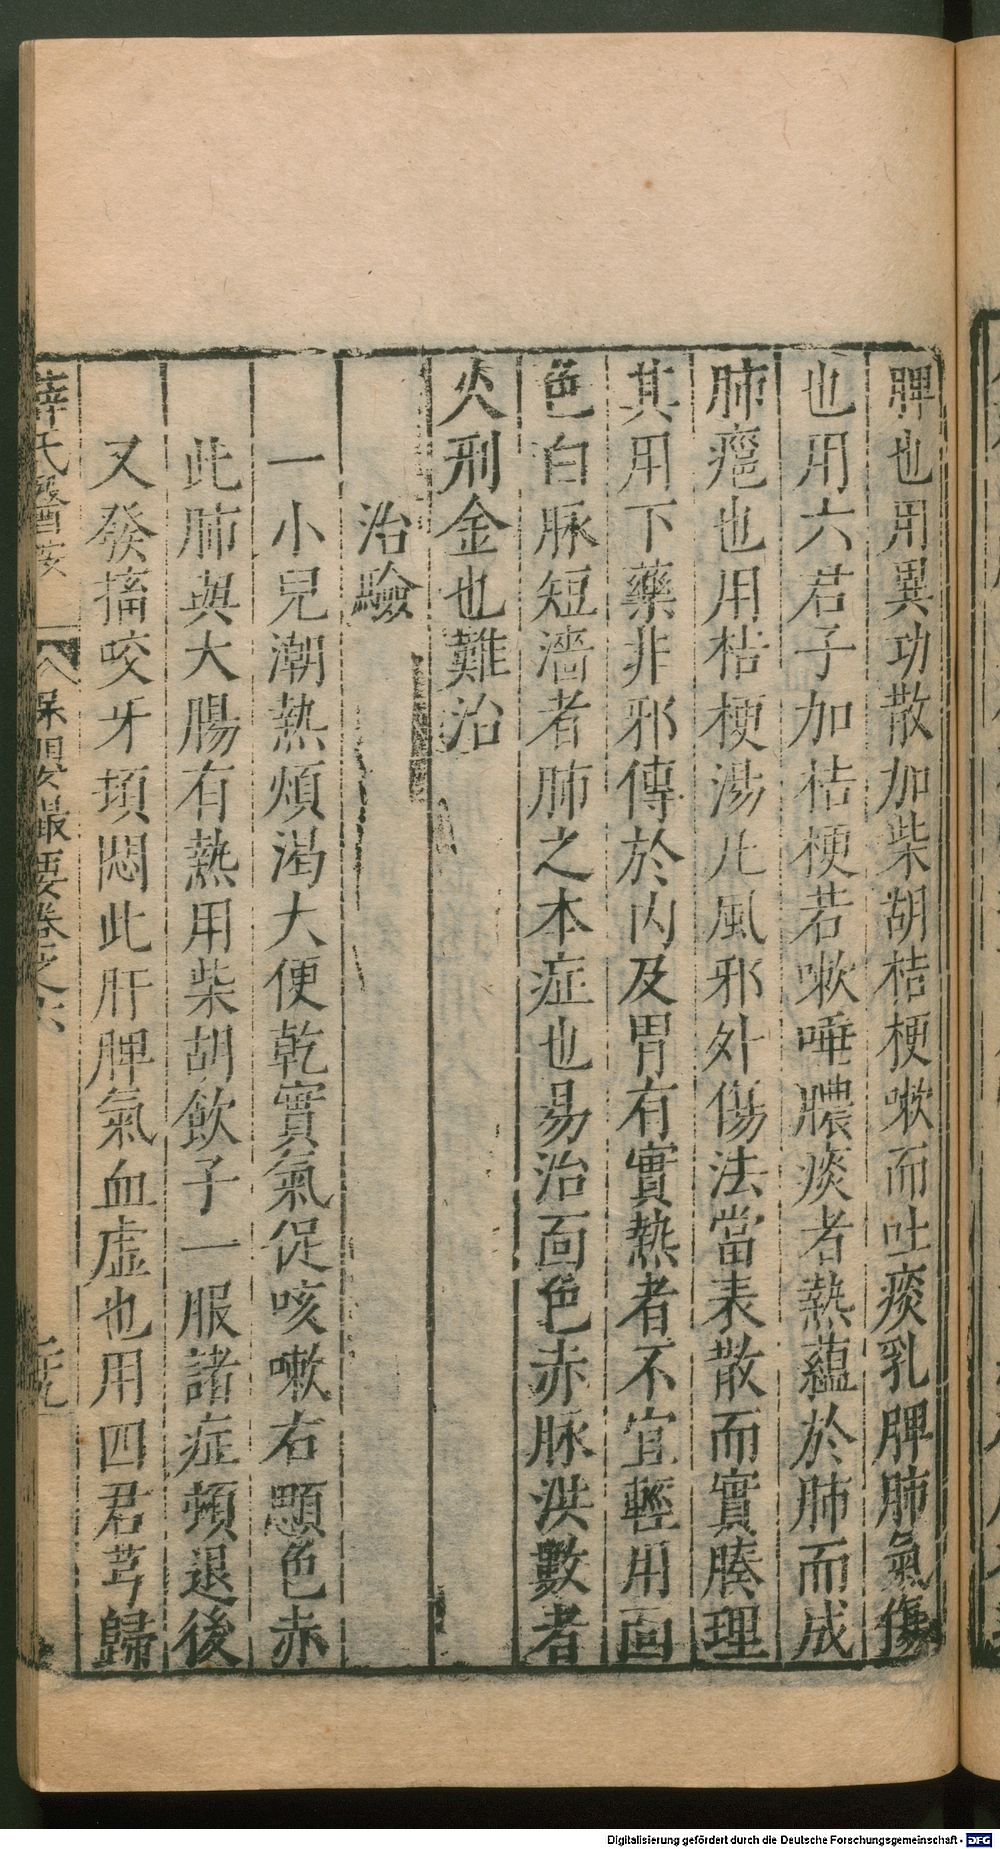 脾也用異功散加柴胡桔梗嗽而吐痰乳脾肺氣傷
也用六君子加桔梗若嗽唾膿痰者熱蘊於肺而成
肺癰也用桔梗湯凡風邪外傷法當表散而實腠理
其用下藥非邪傳於內及胃有實熱者不宜輕用面
色白脉短濇者肺之本症也易治面色赤脉洪數者
火刑金也難治
治驗
一小兒潮熱煩渴大便乾實氣促咳嗽右顋色赤
此肺與大腸有熱用柴胡飲子一服諸症頓退後
又發搐咬牙頓悶此肝脾氣血虛也用四君芎歸
薛氏醫按 保嬰撮要卷之六
Digitalisierung gefördert durch die Deutsche Forschungsgemeinschaft - DFG